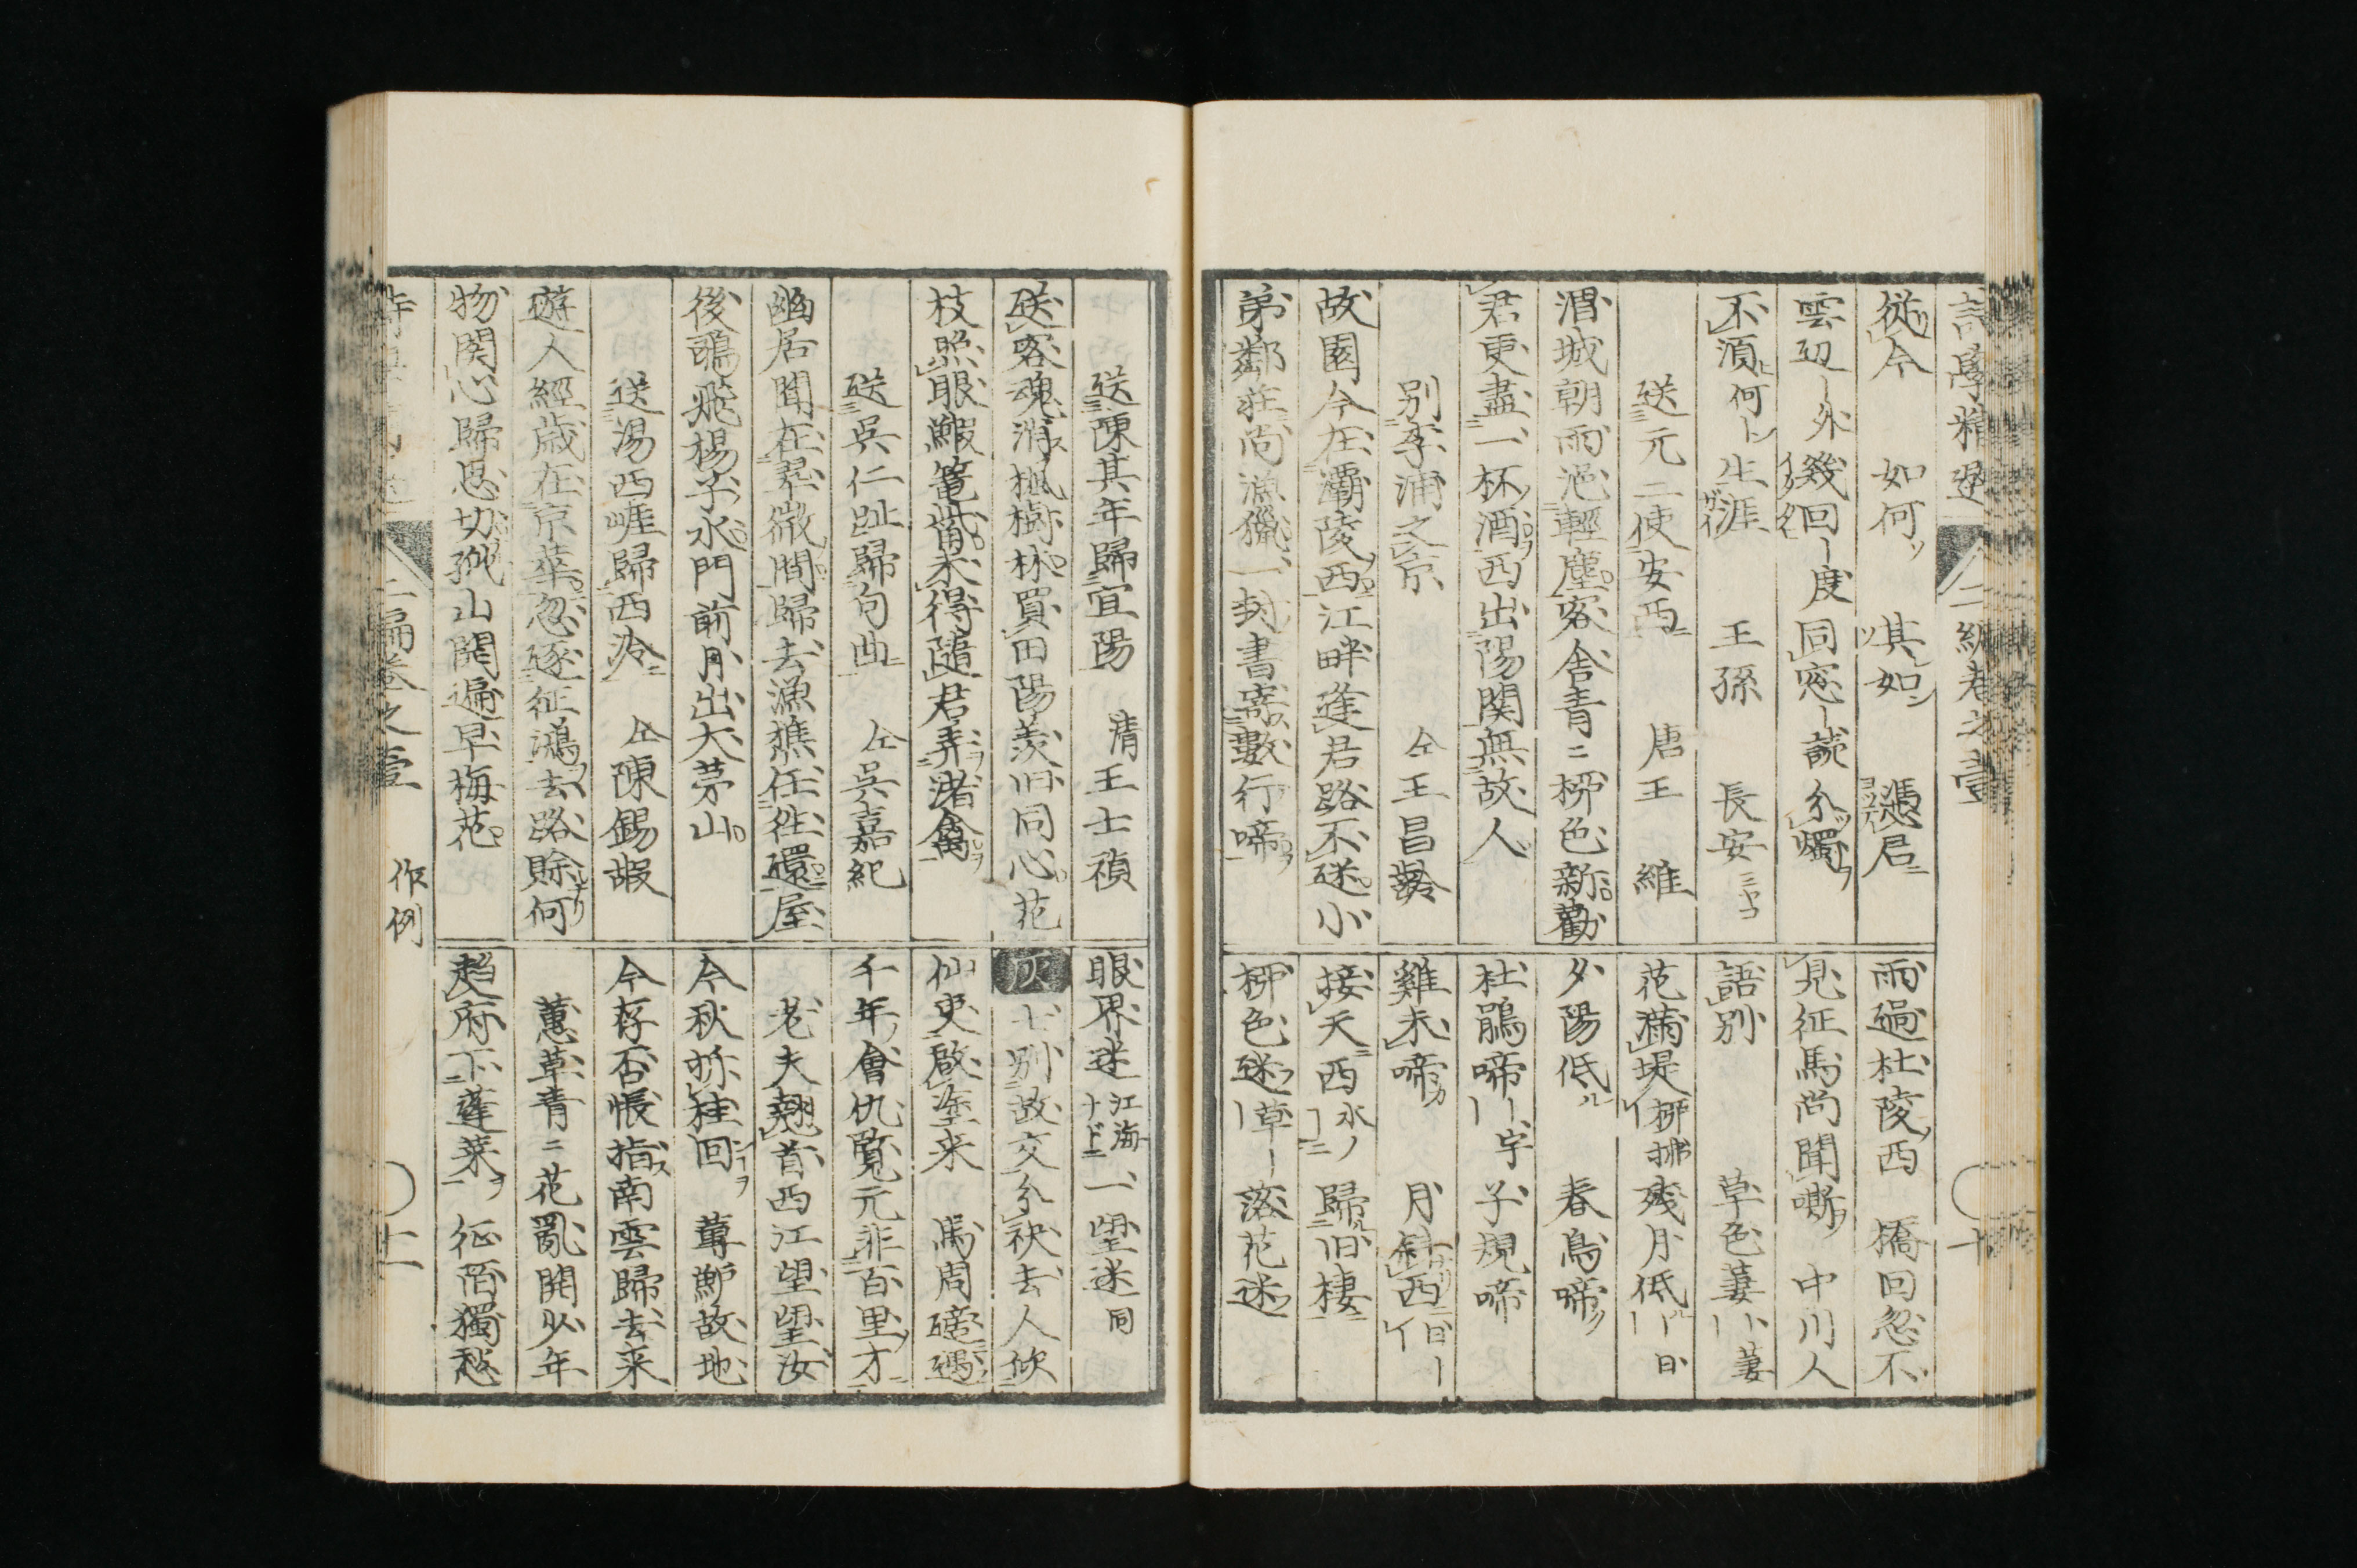 二編卷之壹
從今　如何　其如　憑君
雲辺　外　幾回　度　同窓　読　分燭
不須　何　生涯　王孫　長安
送元二使安西　唐王維
渭城朝雨浥輕塵客舎青〻栁色新勸
君更盡一杯酒西出陽関無故人
別李浦之京　仝王昌齡
故園今在灞陵西江畔逢君路不迷小
弟鄰荘尚漁獵一封書寄數行啼
雨過杜陵西　橋回忽不
見征馬尚聞嘶　中川人
語別　草色萋　萋
花満堤　栁拂　残月低　日
夕陽低　春鳥啼
杜鵑啼　宇　子規啼
雞未啼　月斜西　日
接天西　水　歸旧棲
栁色迷　草　落花迷
送陳其年歸宜陽　清王士禎
送客魂消楓樹林買田陽羨旧同心花
枝照眼鰕篭未得隨君弄渚禽
送吳仁趾歸句曲　仝吳嘉紀
幽居聞在翠微間歸去漁樵任往還屋
後鴻飛楊子水門前月出大茅山
送湯西崕歸西泠　仝陳錫嘏
遊人經歳在京華忽逐征鴻去路賒何
物関心歸思切孤山開遍早梅花
眼界迷　江海ナドニ　一望迷　同
灰　七別故交分袂去人倏
仙吏啟塗来　馬周遇
千年會仇覧元非百里才
老夫翹首西江望望汝
今秋折桂回　蓴鱸故地
今存否悵指南雲歸去来
蕙草青〻花亂開少年
趨府下蓬萊　征西獨愁
二編卷之壹　作例　十一